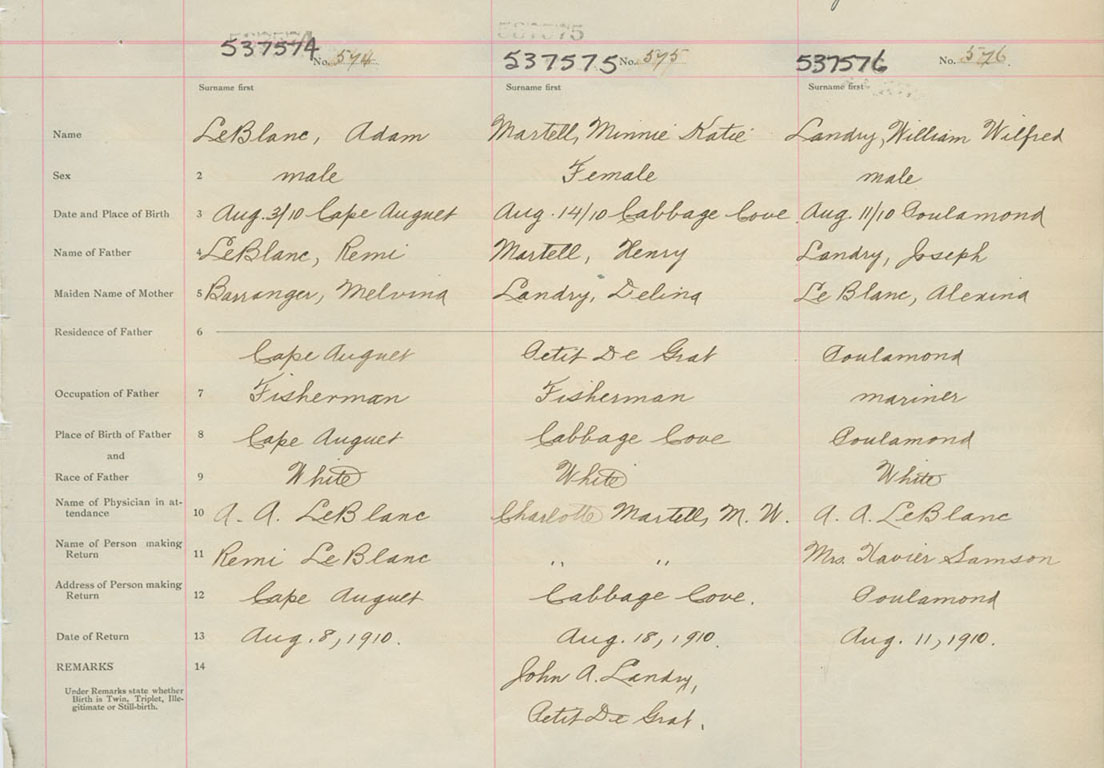 537574 No. 574 537575 No. 575 537576 No. 576
Surname first Surname first Surname first
Name LeBlanc, Adam Martell, Minnie Katie Landry, William Wilfred
Sex 2 male Female male
Date and Place of Birth 3 Aug. 3/10 Cape Auguet Aug. 14/10 Cabbage Cove Aug. 11/10 Poulamond
Name of Father 4 LeBlanc, Remi Martell, Henry Landry, Joseph
Maiden Name of Mother 5 Barranger, Melvina Landry, Delina Le Blanc, Alexina
Residence of Father 6
Cape Auguet Petit De Grat Poulamond
Occupation of Father 7 Fisherman Fisherman mariner
Place of Birth of Father 8 Cape Auguet Cabbage Cove Poulamond
and
Race of Father 9 White White White
Name of Physician in at-
tendance 10 A. A. LeBlanc Charlotte Martell, M. W. A. A. LeBlanc
Name of Person making
Return 11 Remi LeBlanc " " Mrs. Xavier Samson
Address of Person making
Return 12 Cape Auguet Cabbage Cove. Poulamond
Date of Return 13 Aug. 8, 1910. Aug. 18, 1910. Aug. 11, 1910.
REMARKS 14 John A. Landry,
Under Remarks state whether
Birth is Twin, Triplet, Ille-
gitimate or Still-birth.
Petit De Grat.